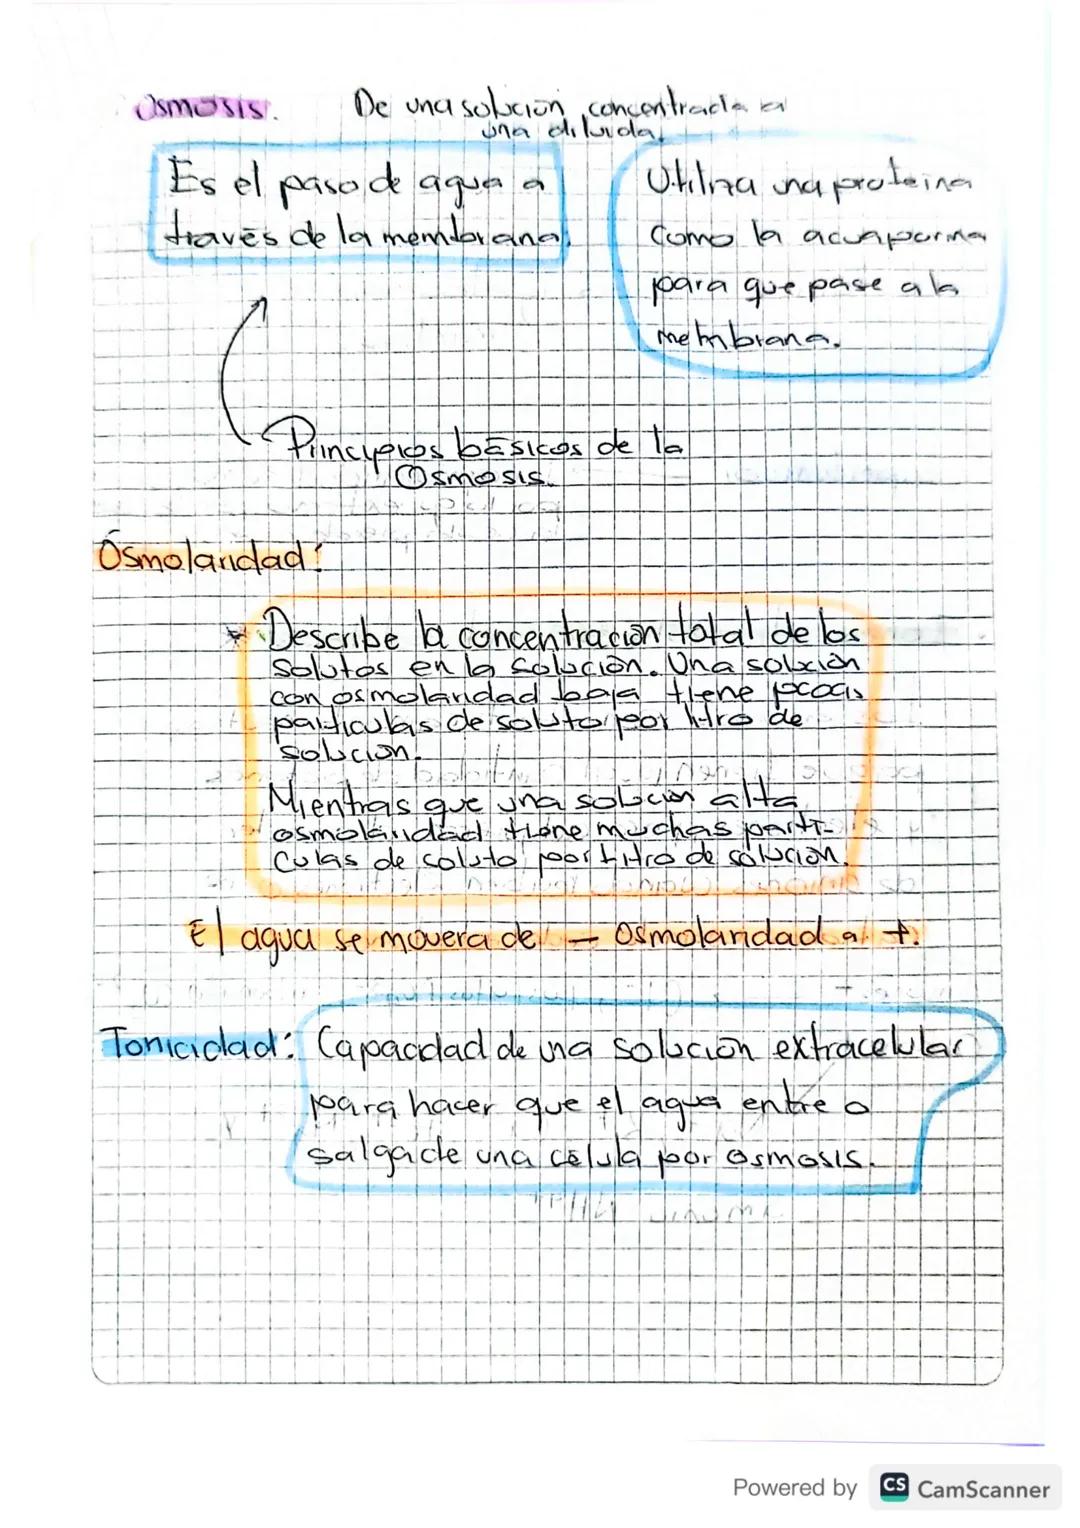 Osmosis.
De una solución concentrada a
una diluida.
Es el paso de agua a
través de la membrana.
Utiliza una proteina
como la acuaporina
para que pase a la
membrana.
Principios básicos de la
Osmosis.
Osmolaridad:
* Describe la concentración total de los
solutos en la solución. Una solución
con osmolaridad baja tiene pocas
particulas de soluto por litro de
solución.
Mientras que una solución alta
osmolaridad tiene muchas partí-
culas de soluto por litro de solución.
El agua se movera de - Osmolaridad a +.
Tonicidad: Capacidad de una solución extracelular
para hacer que el agua entre o
salga de una célula por osmosis.
Powered by CS CamScanner